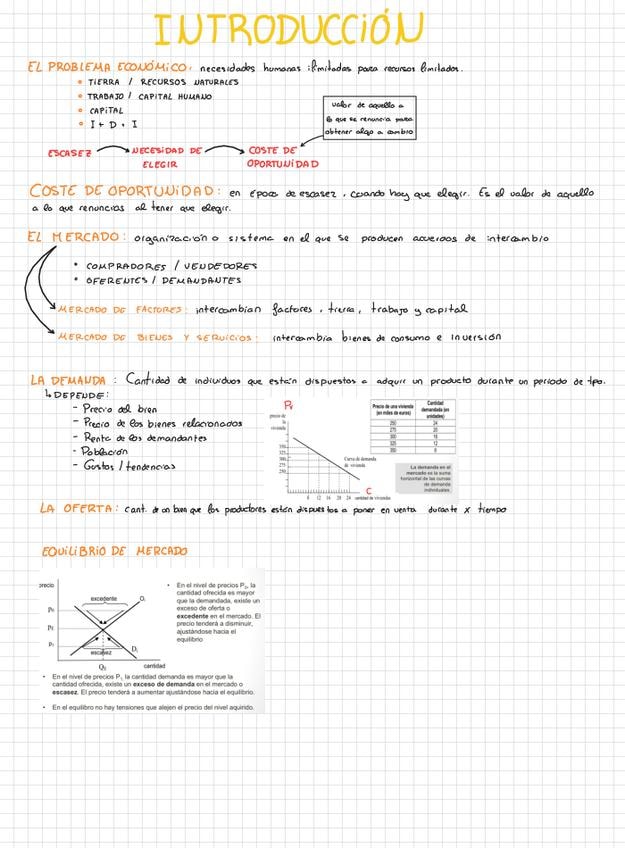 INTRODUCCIÓN
EL PROBLEMA ECONÓMICO: necesidades humanas ilimitadas para recursos limitados.
• TIERRA / RECURSOS NATURALES
• TRABAJO / CAPITAL HUMANO
• CAPITAL
• I + D + I
valor de aquello a
lo que se renuncia para
obtener algo a cambio
ESCASEZ → NECESIDAD DE → COSTE DE
ELEGIR OPORTUNIDAD
COSTE DE OPORTUNIDAD: en época de escasez, cuando hay que elegir. Es el valor de aquello
a lo que renuncias al tener que elegir.
EL MERCADO: organización o sistema en el que se producen acuerdos de intercambio
• COMPRADORES / VENDEDORES
• OFERENTES / DEMANDANTES
MERCADO DE FACTORES: intercambian factores, tierra, trabajo y capital
MERCADO DE BIENES Y SERVICIOS: intercambia bienes de consumo e inversión
LA DEMANDA: Cantidad de individuos que están dispuestos a adquir un producto durante un periodo de tpo.
↳ DEPENDE:
- Precio del bien
- Precio de los bienes relacionados
- Renta de los demandantes
- Población
- Gustos / tendencias
precio de
la
vivienda
350
325
300
275
250
Curva de demanda
de vivienda
8 12 16 20 24 cantidad de viviendas
C
Precio de una vivienda (en miles de euros) Cantidad demandada (en unidades)
250 24
275 20
300 16
325 12
350 8
La demanda en el
mercado es la suma
horizontal de las curvas
de demanda
individuales.
LA OFERTA: cant. de un bien que los productores están dispuestos a poner en venta durante x tiempo
EQUILIBRIO DE MERCADO
precio
excedente
escasez
cantidad
• En el nivel de precios P₀, la
cantidad ofrecida es mayor
que la demandada, existe un
exceso de oferta o
excedente en el mercado. El
precio tenderá a disminuir,
ajustándose hacia el
equilibrio
• En el nivel de precios P₁ la cantidad demanda es mayor que la
cantidad ofrecida, existe un exceso de demanda en el mercado o
escasez. El precio tenderá a aumentar ajustándose hacia el equilibrio.
• En el equilibrio no hay tensiones que alejen el precio del nivel aquirido.